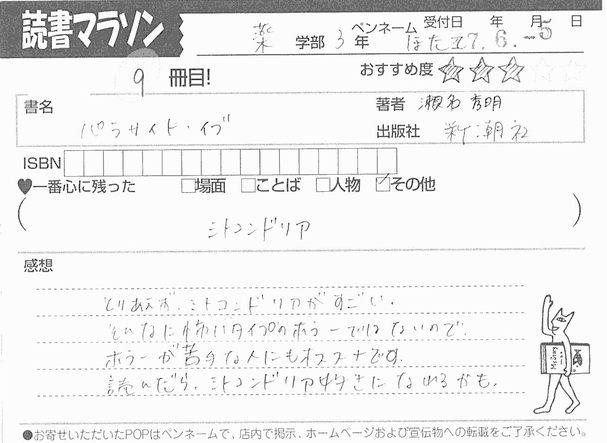 読書マラソン
薬 学部 3 年 ペンネーム ほたて 受付日 17.6.-5 年 月 日
9 冊目! おすすめ度 ★★★☆☆
書名 パラサイト・イブ
著者 瀬名秀明
出版社 新潮社
ISBN
♥一番心に残った □場面 □ことば □人物 ☑その他
( ミトコンドリア )
感想
とりあえず、ミトコンドリアがすごい。
そんなに怖いタイプのホラーではないので、
ホラーが苦手な人にもオススメです。
読んだら、ミトコンドリア好きになれるかも。
●お寄せいただいたPOPはペンネームで、店内で掲示、ホームページおよび宣伝物への転載をご了承ください。